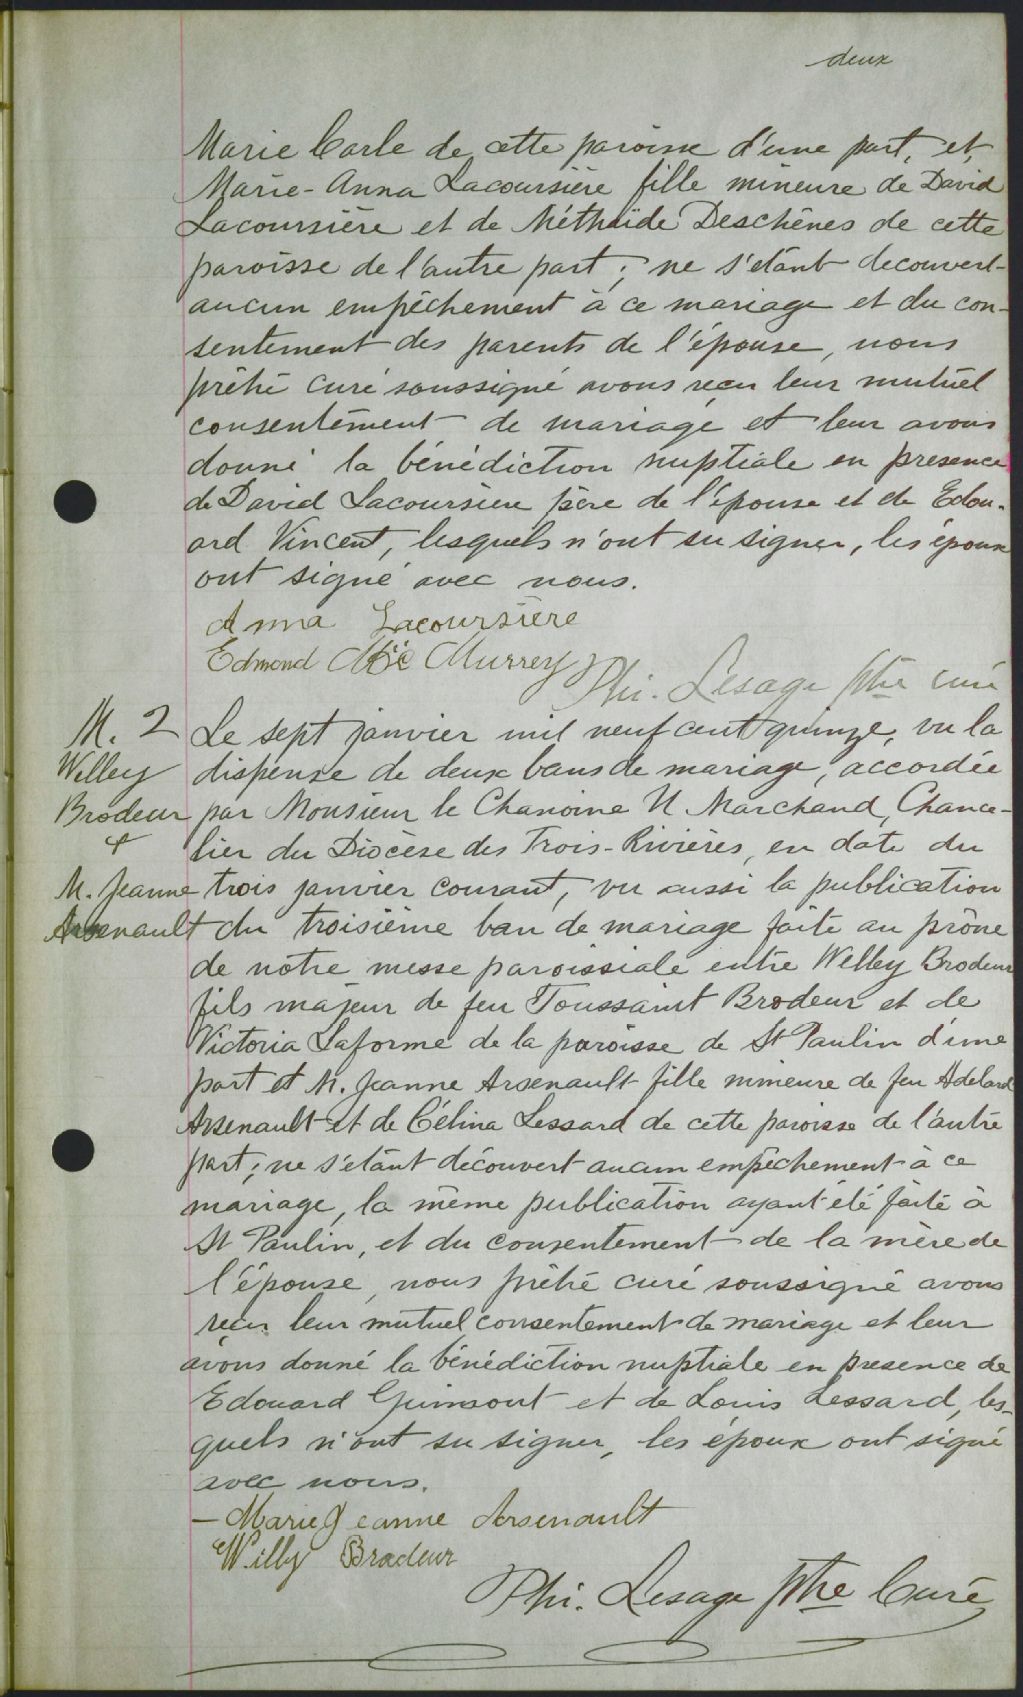 deux
Marie Carle de cette paroisse d'une part, et,
Marie-Anna Lacoursière fille mineure de David
Lacoursière et de Méthaïde Deschênes de cette
paroisse de l'autre part; ne s'étant decouvert
aucun empêchement à ce mariage et du con-
sentement des parents de l'épouse, nous
prêtre curé soussigné avons reçu leur mutuel
consentement de mariage et leur avons
donné la bénédiction nuptiale en presence
de David Lacoursière père de l'épouse et de Edou-
ard Vincent, lesquels n'ont su signer, les époux
ont signé avec nous.
Anna Lacoursière
Edmond Mc Murrey
Phi. Lesage ptre curé
M. 2
Welley
Brodeur
&
M. Jeanne
Arsenault
Le sept janvier mil neuf cent quinze, vu la
dispense de deux bans de mariage, accordée
par Monsieur le Chanoine U Marchand, Chance-
lier du Diocèse des Trois-Rivières, en date du
trois janvier courant, vu aussi la publication
du troisième ban de mariage faite au prône
de notre messe paroissiale entre Welley Brodeur
fils majeur de feu Toussaint Brodeur et de
Victoria Laforme de la paroisse de St Paulin d'une
part et M. Jeanne Arsenault fille mineure de feu Adelard
Arsenault et de Célina Lessard de cette paroisse de l'autre
part; ne s'étant découvert aucun empêchement à ce
mariage, la même publication ayant été faite à
St Paulin, et du consentement de la mère de
l'épouse, nous prêtre curé soussigné avons
reçu leur mutuel consentement de mariage et leur
avons donné la bénédiction nuptiale en presence de
Edouard Guimont et de Louis Lessard, les-
quels n'ont su signer, les époux ont signé
avec nous.
— Marie Jeanne Arsenault
Willy Bradeur
Phi. Lesage ptre Curé